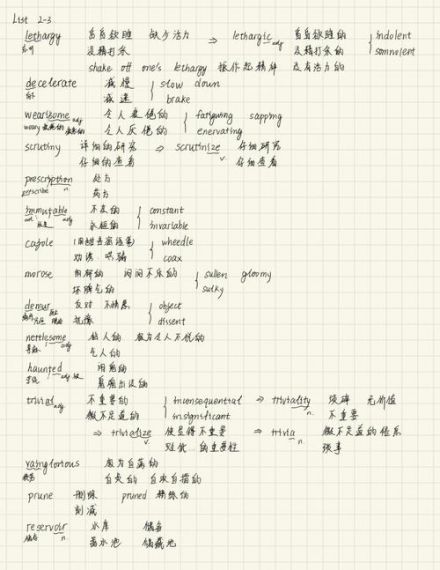 List 2-3
lethargy 昏昏欲睡 缺少活力 ⇒ lethargic adj 昏昏欲睡的 indolent
无精打采 无精打采的 somnolent
shake off one's lethargy 振作起精神 没有活力的
decelerate 减慢 slow down
减速 brake
wearisome adj 令人疲倦的 fatiguing sapping
weary 令人厌倦的 enervating
scrutiny 详细的研究 ⇒ scrutinize v 仔细研究
仔细的查看 仔细查看
prescription n 处方
prescribe 药方
immutable adj 不变的 constant
永恒的 invariable
cajole wheedle
劝诱 哄骗 coax
morose 闷闷不乐的 sullen gloomy
坏脾气的 sulky
demur 反对 object
抗议 dissent
nettlesome adj 恼人的 极为令人不悦的
气人的
haunted adj
trivial adj 不重要的 inconsequential ⇒ triviality n 琐碎 无价值
微不足道的 insignificant 不重要
⇒ trivialize v 使显得不重要 ⇒ trivia n 微不足道的
的重要性 琐事
vainglorious 极为自负的
自负的
prune 删除 pruned
削减
reservoir n 水库 储备
蓄水池